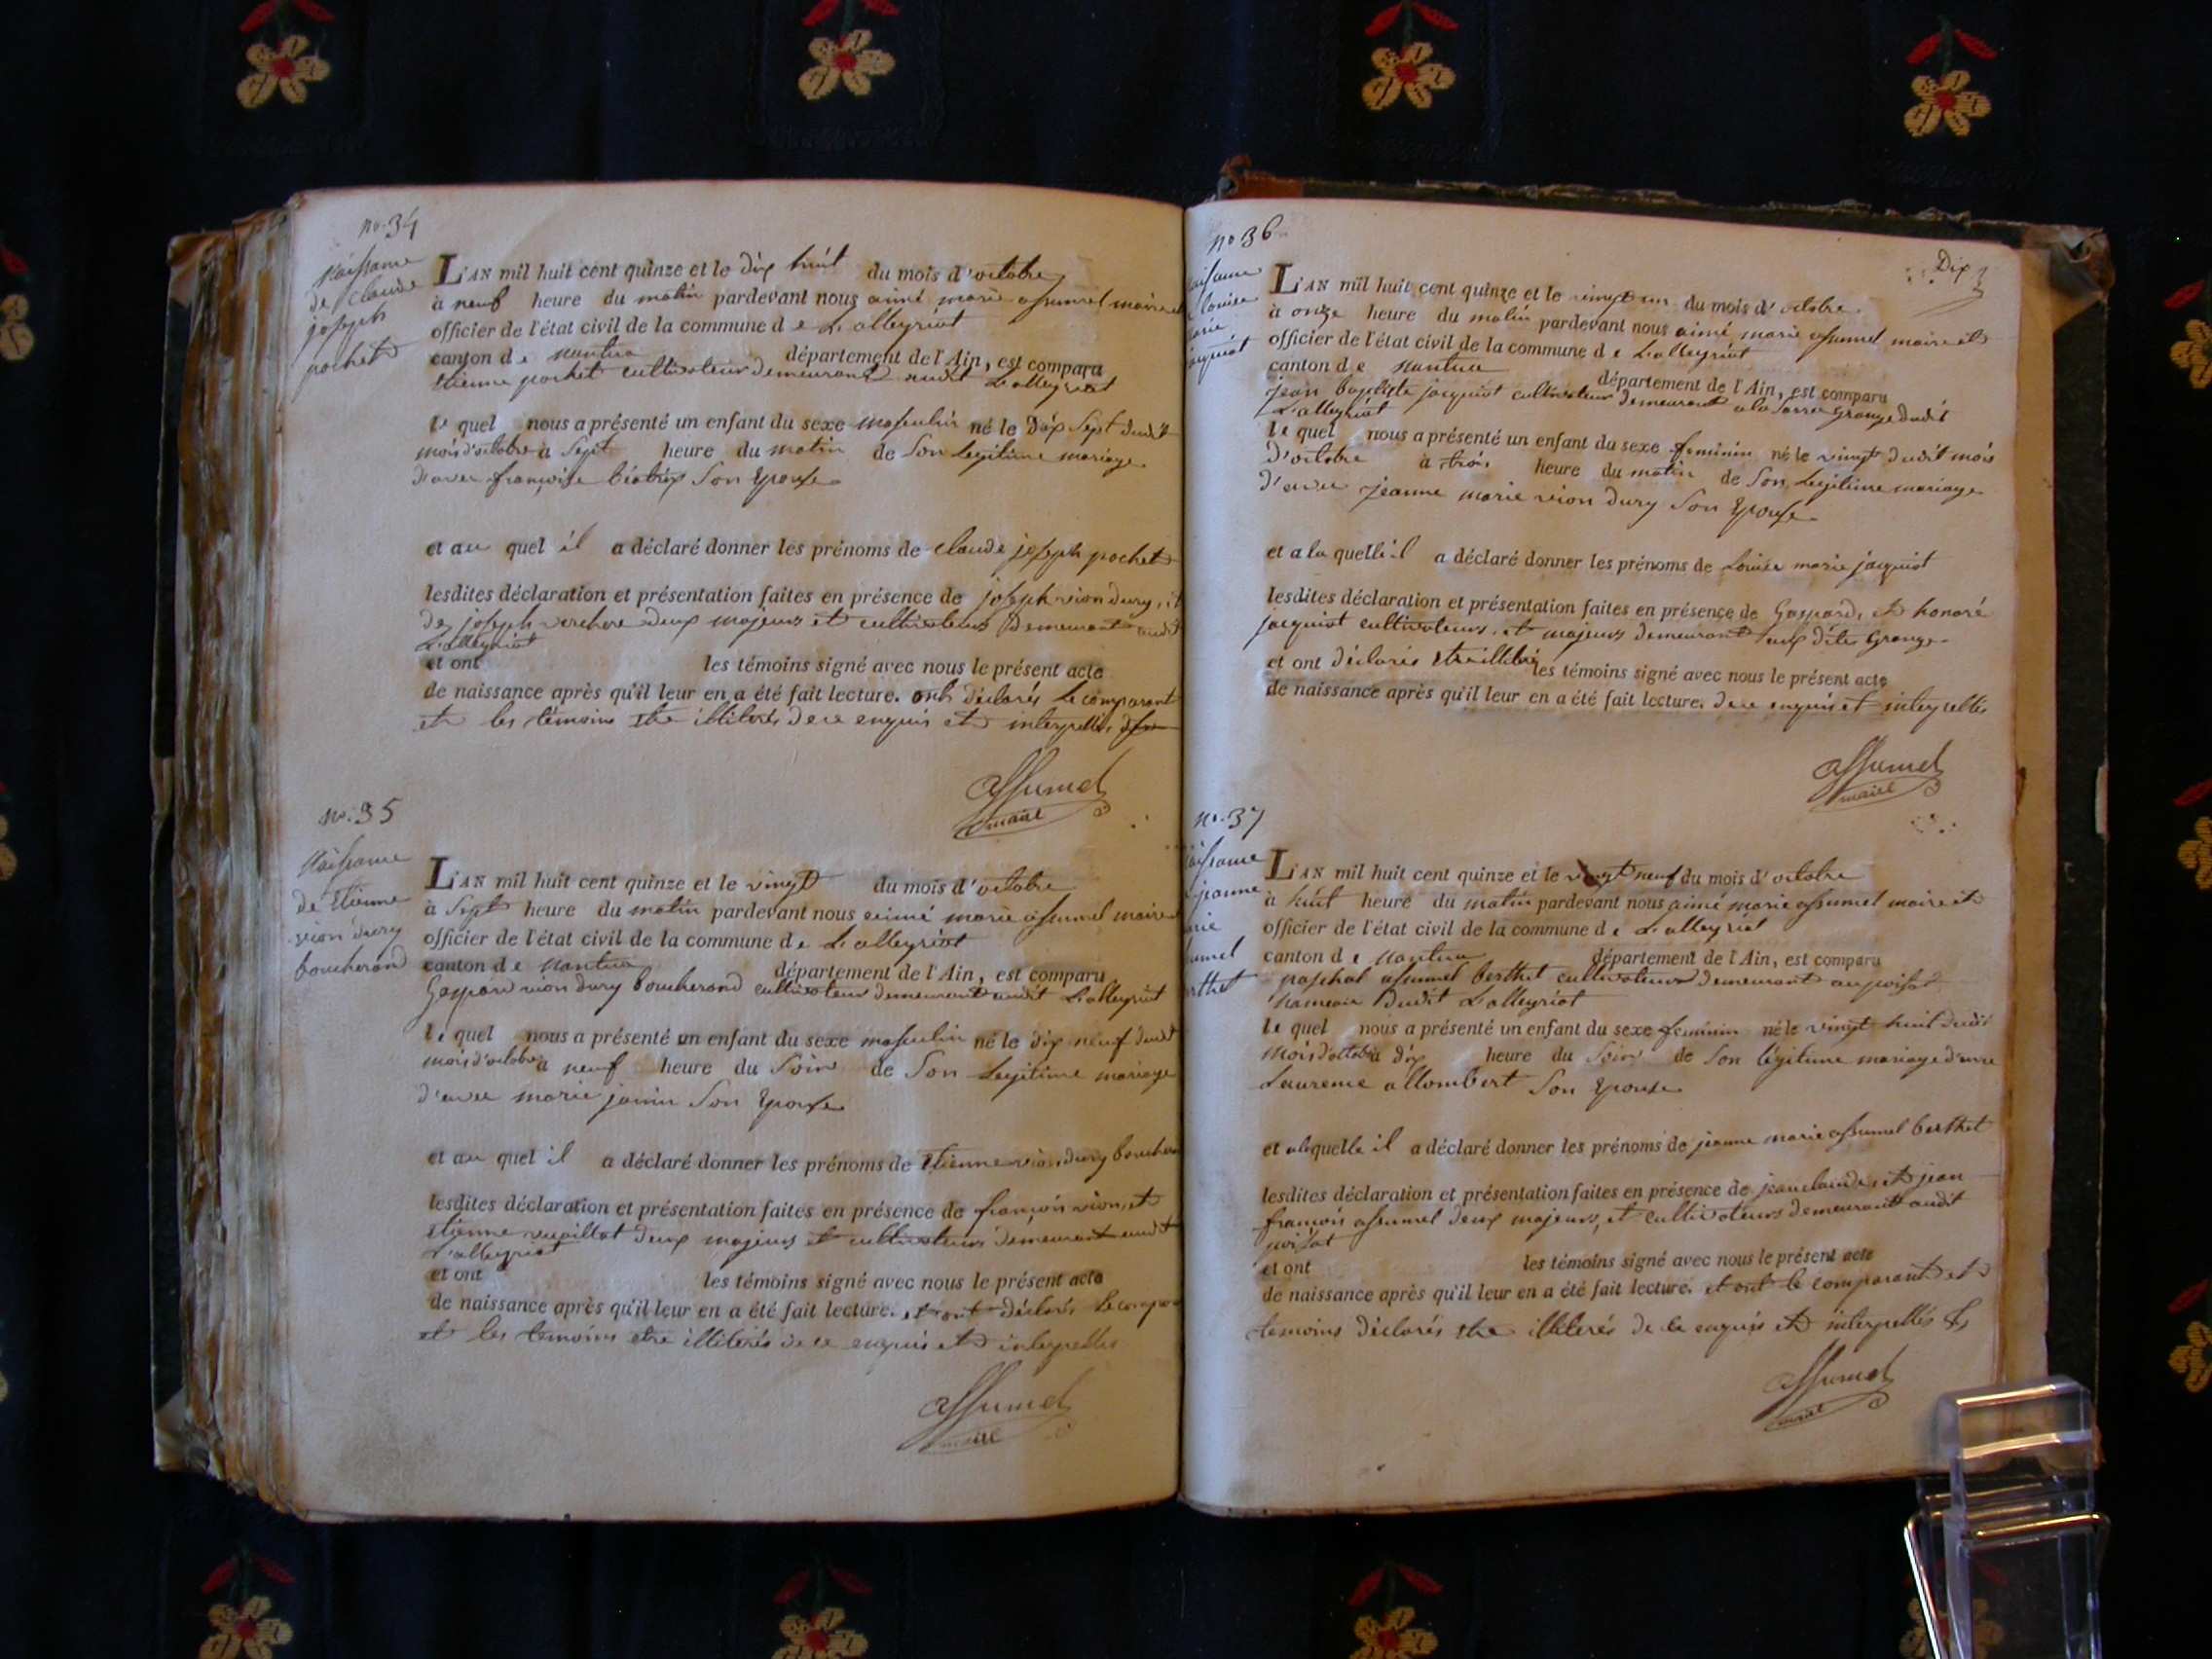 no. 34
Naissance
de Claude
joseph
pochet
L'AN mil huit cent quinze et le dix huit du mois d'octobre
à neuf heure du matin pardevant nous aimé marie assumel maire et
officier de l'état civil de la commune de L'alleyriat
canton de nantua département de l'Ain, est comparu
Etienne pochet cultivateur demeurant audit L'alleyriat
le quel nous a présenté un enfant du sexe masculin né le Dix Sept dudit
mois d'octobre à Sept heure du matin de Son legitime mariage
d'avec françoise béatrix Son Epouse
et au quel il a déclaré donner les prénoms de claude joseph pochet
lesdites déclaration et présentation faites en présence de joseph vion dury, et
de joseph verchere deux majeurs et cultivateurs demeurant audit
L'alleyriat
et ont les témoins signé avec nous le présent acte
de naissance après qu'il leur en a été fait lecture. ont déclarés le comparant
et les témoins être illiterés de ce enquis et interpellés
assumel
maire
no. 35
Naissance
de Etienne
vion dury
boucherand
L'AN mil huit cent quinze et le vingt du mois d'octobre
à Sept heure du matin pardevant nous aimé marie assumel maire et
officier de l'état civil de la commune de L'alleyriat
canton de nantua département de l'Ain, est comparu
Gaspard vion dury boucherand cultivateur demeurant audit L'alleyriat
le quel nous a présenté un enfant du sexe masculin né le dix neuf dudit
mois d'octobre à neuf heure du Soir de Son Legitime mariage
d'avec marie janin Son Epouse
et au quel il a déclaré donner les prénoms de Etienne vion dury boucheran
lesdites déclaration et présentation faites en présence de françois vion, et
Etienne vuaillat deux majeurs et cultivateurs demeurant audit
L'alleyriat
et ont les témoins signé avec nous le présent acte
de naissance après qu'il leur en a été fait lecture. et ont déclarés le compar
et les temoins etre illiterés de ce enquis et interpellés
assumel
maire
no 36
aissance
louise
marie
jacquiot
Dix
L'AN mil huit cent quinze et le vingt un du mois d'octobre
à onze heure du matin pardevant nous aimé marie assumel maire et
officier de l'état civil de la commune de L'alleyriat
canton de nantua département de l'Ain, est comparu
jean baptiste jacquiot cultivateur demeurant a la Grange dudit
L'alleyriat
le quel nous a présenté un enfant du sexe feminin né le vingt dudit mois
d'octobre à trois heure du matin de Son Legitime mariage
d'avec jeanne marie vion dury Son Epouse
et a la quelle il a déclaré donner les prénoms de Louise marie jacquiot
lesdites déclaration et présentation faites en présence de Gaspard, et honoré
jacquiot cultivateurs, et majeurs demeurant aux dites Grange
et ont déclarés etre illiterés les témoins signé avec nous le présent acte
de naissance après qu'il leur en a été fait lecture. de ce enquis et interpellés
assumel
maire
no. 37
aissance
jeanne
arie
umel
rthet
L'AN mil huit cent quinze et le vingt neuf du mois d'octobre
à huit heure du matin pardevant nous aimé marie assumel maire et
officier de l'état civil de la commune de L'alleyriat
canton de nantua département de l'Ain, est comparu
paschal assumel berthet cultivateur demeurant au poisat
hameau dudit L'alleyriat
le quel nous a présenté un enfant du sexe feminin né le vingt huit dudit
mois d'octobre à dix heure du Soir de Son légitime mariage d'avec
Laurence allombert Son Epouse
et a la quelle il a déclaré donner les prénoms de jeanne marie assumel berthet
lesdites déclaration et présentation faites en présence de jean claude, et jean
françois assumel deux majeurs, et cultivateurs demeurant audit
poisat
et ont les témoins signé avec nous le présent acte
de naissance après qu'il leur en a été fait lecture. et ont le comparant et
temoins déclarés etre illiterés de ce enquis et interpellés
assumel
maire